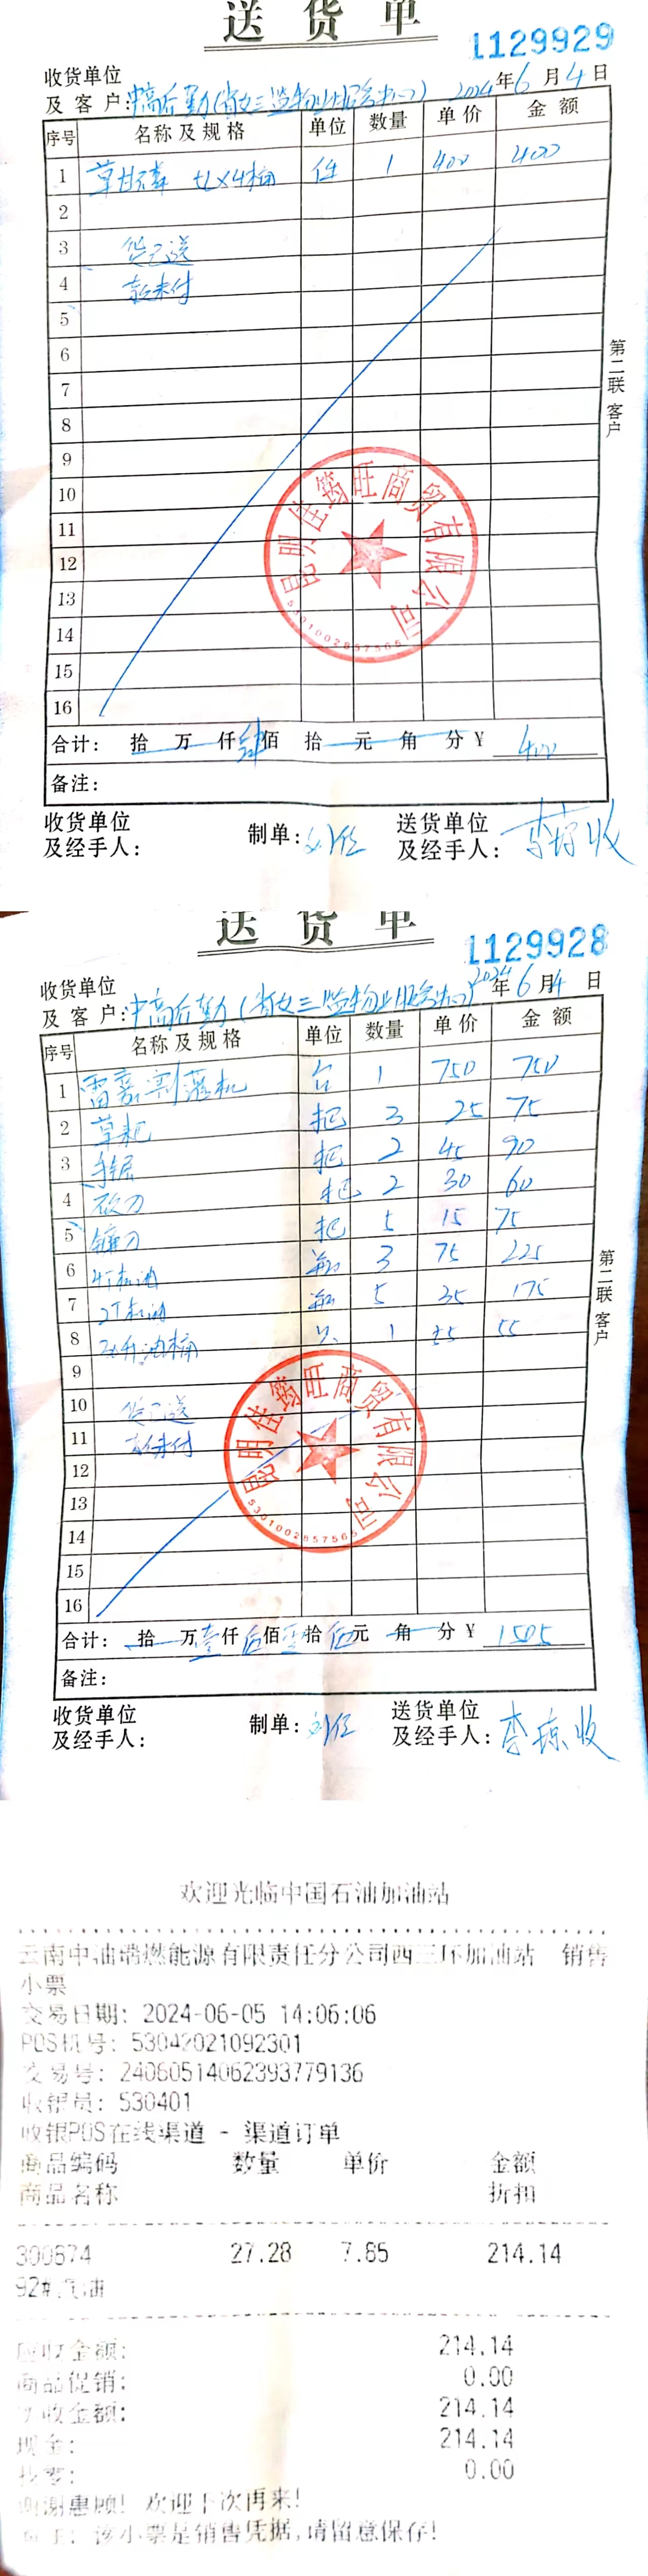 送货单
1129929
收货单位
及客户:中高后勤(省女三监物业服务中心) 2024年6月4日
序号 名称及规格 单位 数量 单价 金额
1 草甘膦 件 1 400 400
2
3 货已送
4 款未付
5
6
7
8
9
10
11
12
13
14
15
16
第二联 客户
昆明佳筠旺商贸有限公司
5301002857565
合计: 拾 万 仟 肆佰 拾 元 角 分 ¥ 400
备注:
收货单位 制单: 送货单位
及经手人: 及经手人:
送货单
1129928
收货单位
及客户:中高后勤(省女三监物业服务中心) 2024年6月4日
序号 名称及规格 单位 数量 单价 金额
1 雷嘉割灌机 台 1 750 750
2 草耙 把 3 25 75
3 手锯 把 2 45 90
4 砍刀 把 2 30 60
5 镰刀 把 5 15 75
6 4T机油 瓶 3 75 225
7 2T机油 瓶 5 35 175
8 油桶 只 1 55 55
9
10 货已送
11 款未付
12
13
14
15
16
第二联 客户
昆明佳筠旺商贸有限公司
5301002857565
合计: 拾 万壹仟伍佰零拾伍元 角 分 ¥ 1505
备注:
收货单位 制单: 送货单位
及经手人: 及经手人:
欢迎光临中国石油加油站
云南中油端燃能源有限责任分公司西三环加油站 销售
小票
交易日期: 2024-06-05 14:06:06
POS机号: 53042021092301
交易号: 24060514062393779136
收银员: 530401
收银POS在线渠道 - 渠道订单
商品编码 数量 单价 金额
商品名称 折扣
300674 27.28 7.85 214.14
92#汽油
应收金额: 214.14
商品促销: 0.00
实收金额: 214.14
现金: 214.14
找零: 0.00
谢谢惠顾! 欢迎下次再来!
该小票是销售凭据,请留意保存!